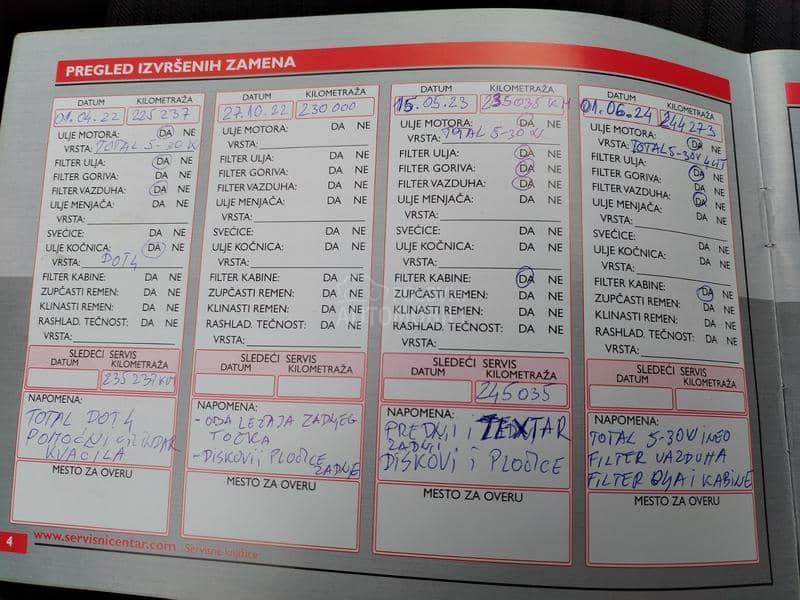 PREGLED IZVRŠENIH ZAMENA
DATUM KILOMETRAŽA
01.04.22 225 237
ULJE MOTORA: DA NE
VRSTA: TOTAL 5-30W
FILTER ULJA: DA NE
FILTER GORIVA: DA NE
FILTER VAZDUHA: DA NE
ULJE MENJAČA: DA NE
VRSTA:
SVEĆICE: DA NE
ULJE KOČNICA: DA NE
VRSTA: DOT4
FILTER KABINE: DA NE
ZUPČASTI REMEN: DA NE
KLINASTI REMEN: DA NE
RASHLAD. TEČNOST: DA NE
VRSTA:
SLEDEĆI SERVIS
DATUM KILOMETRAŽA
235 237 KM
NAPOMENA:
TOTAL DOT4
POMOĆNI CILINDAR
KVAČILA
MESTO ZA OVERU
DATUM KILOMETRAŽA
27.10.22 230 000
ULJE MOTORA: DA NE
VRSTA:
FILTER ULJA: DA NE
FILTER GORIVA: DA NE
FILTER VAZDUHA: DA NE
ULJE MENJAČA: DA NE
VRSTA:
SVEĆICE: DA NE
ULJE KOČNICA: DA NE
VRSTA:
FILTER KABINE: DA NE
ZUPČASTI REMEN: DA NE
KLINASTI REMEN: DA NE
RASHLAD. TEČNOST: DA NE
VRSTA:
SLEDEĆI SERVIS
DATUM KILOMETRAŽA
NAPOMENA:
- OBA LEŽAJA ZADNJEG
TOČKA
- DISKOVI i PLOČICE
ZADNJE
MESTO ZA OVERU
DATUM KILOMETRAŽA
15.05.23 235035 KM
ULJE MOTORA: DA NE
VRSTA: TOTAL 5-30W
FILTER ULJA: DA NE
FILTER GORIVA: DA NE
FILTER VAZDUHA: DA NE
ULJE MENJAČA: DA NE
VRSTA:
SVEĆICE: DA NE
ULJE KOČNICA: DA NE
VRSTA:
FILTER KABINE: DA NE
ZUPČASTI REMEN: DA NE
KLINASTI REMEN: DA NE
RASHLAD. TEČNOST: DA NE
VRSTA:
SLEDEĆI SERVIS
DATUM KILOMETRAŽA
245035
NAPOMENA:
PREDNJI i TEXTAR
ZADNJI
DISKOVI i PLOČICE
MESTO ZA OVERU
DATUM KILOMETRAŽA
01.06.24 244 273
ULJE MOTORA: DA NE
VRSTA: TOTAL 5-30W
FILTER ULJA: DA NE
FILTER GORIVA: DA NE
FILTER VAZDUHA: DA NE
ULJE MENJAČA: DA NE
VRSTA:
SVEĆICE: DA NE
ULJE KOČNICA: DA NE
VRSTA:
FILTER KABINE: DA NE
ZUPČASTI REMEN: DA NE
KLINASTI REMEN: DA NE
RASHLAD. TEČNOST: DA NE
VRSTA:
SLEDEĆI SERVIS
DATUM KILOMETRAŽA
NAPOMENA:
TOTAL 5-30W INEO
FILTER VAZDUHA
FILTER ULJA i KABINE
MESTO ZA OVERU
4
www.servisnicentar.com Servisne knjižice